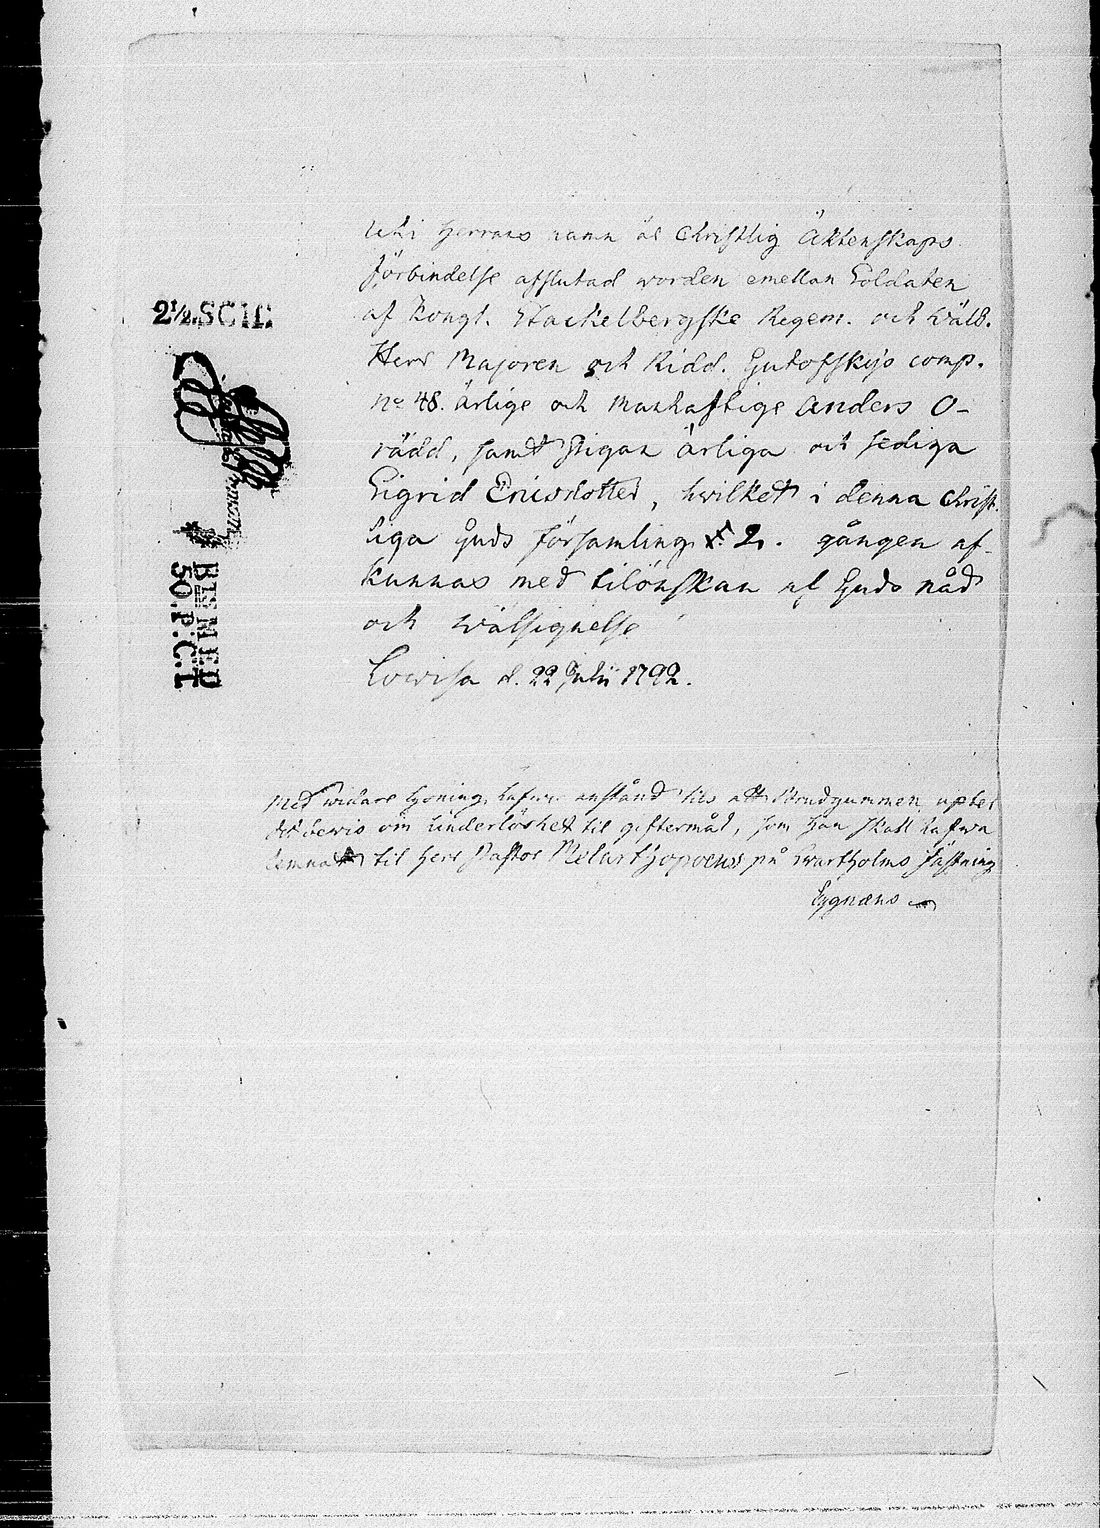 2½ SCH:
BEMED
50.P:C:T
Uti Herrans namn är Christlig Äktenskaps
förbindelse afslutad worden emellan Soldaten
af Kongl. Stackelbergske Regem. och Wälb.
Herr Majoren och Ridd. Gutofskys comp.
No 48. ärlige och Manhaftige Anders O-
rädd, samt Pigan ärliga och sediga
Sigrid Ericsdotter, hwilket i denna Christ-
liga Guds församling 2. gången af-
kunnas med tilönskan af Guds nåd
och wälsignelse
Lowisa d. 22 Julii 1792.
Med widare lysning hafwe anstånd tils att Brudgummen upter
det bewis om hinderlöshet til giftermål, som han skall hafwa
lemnat til Herr Pastor på Swartholms fästning
Cygnæus